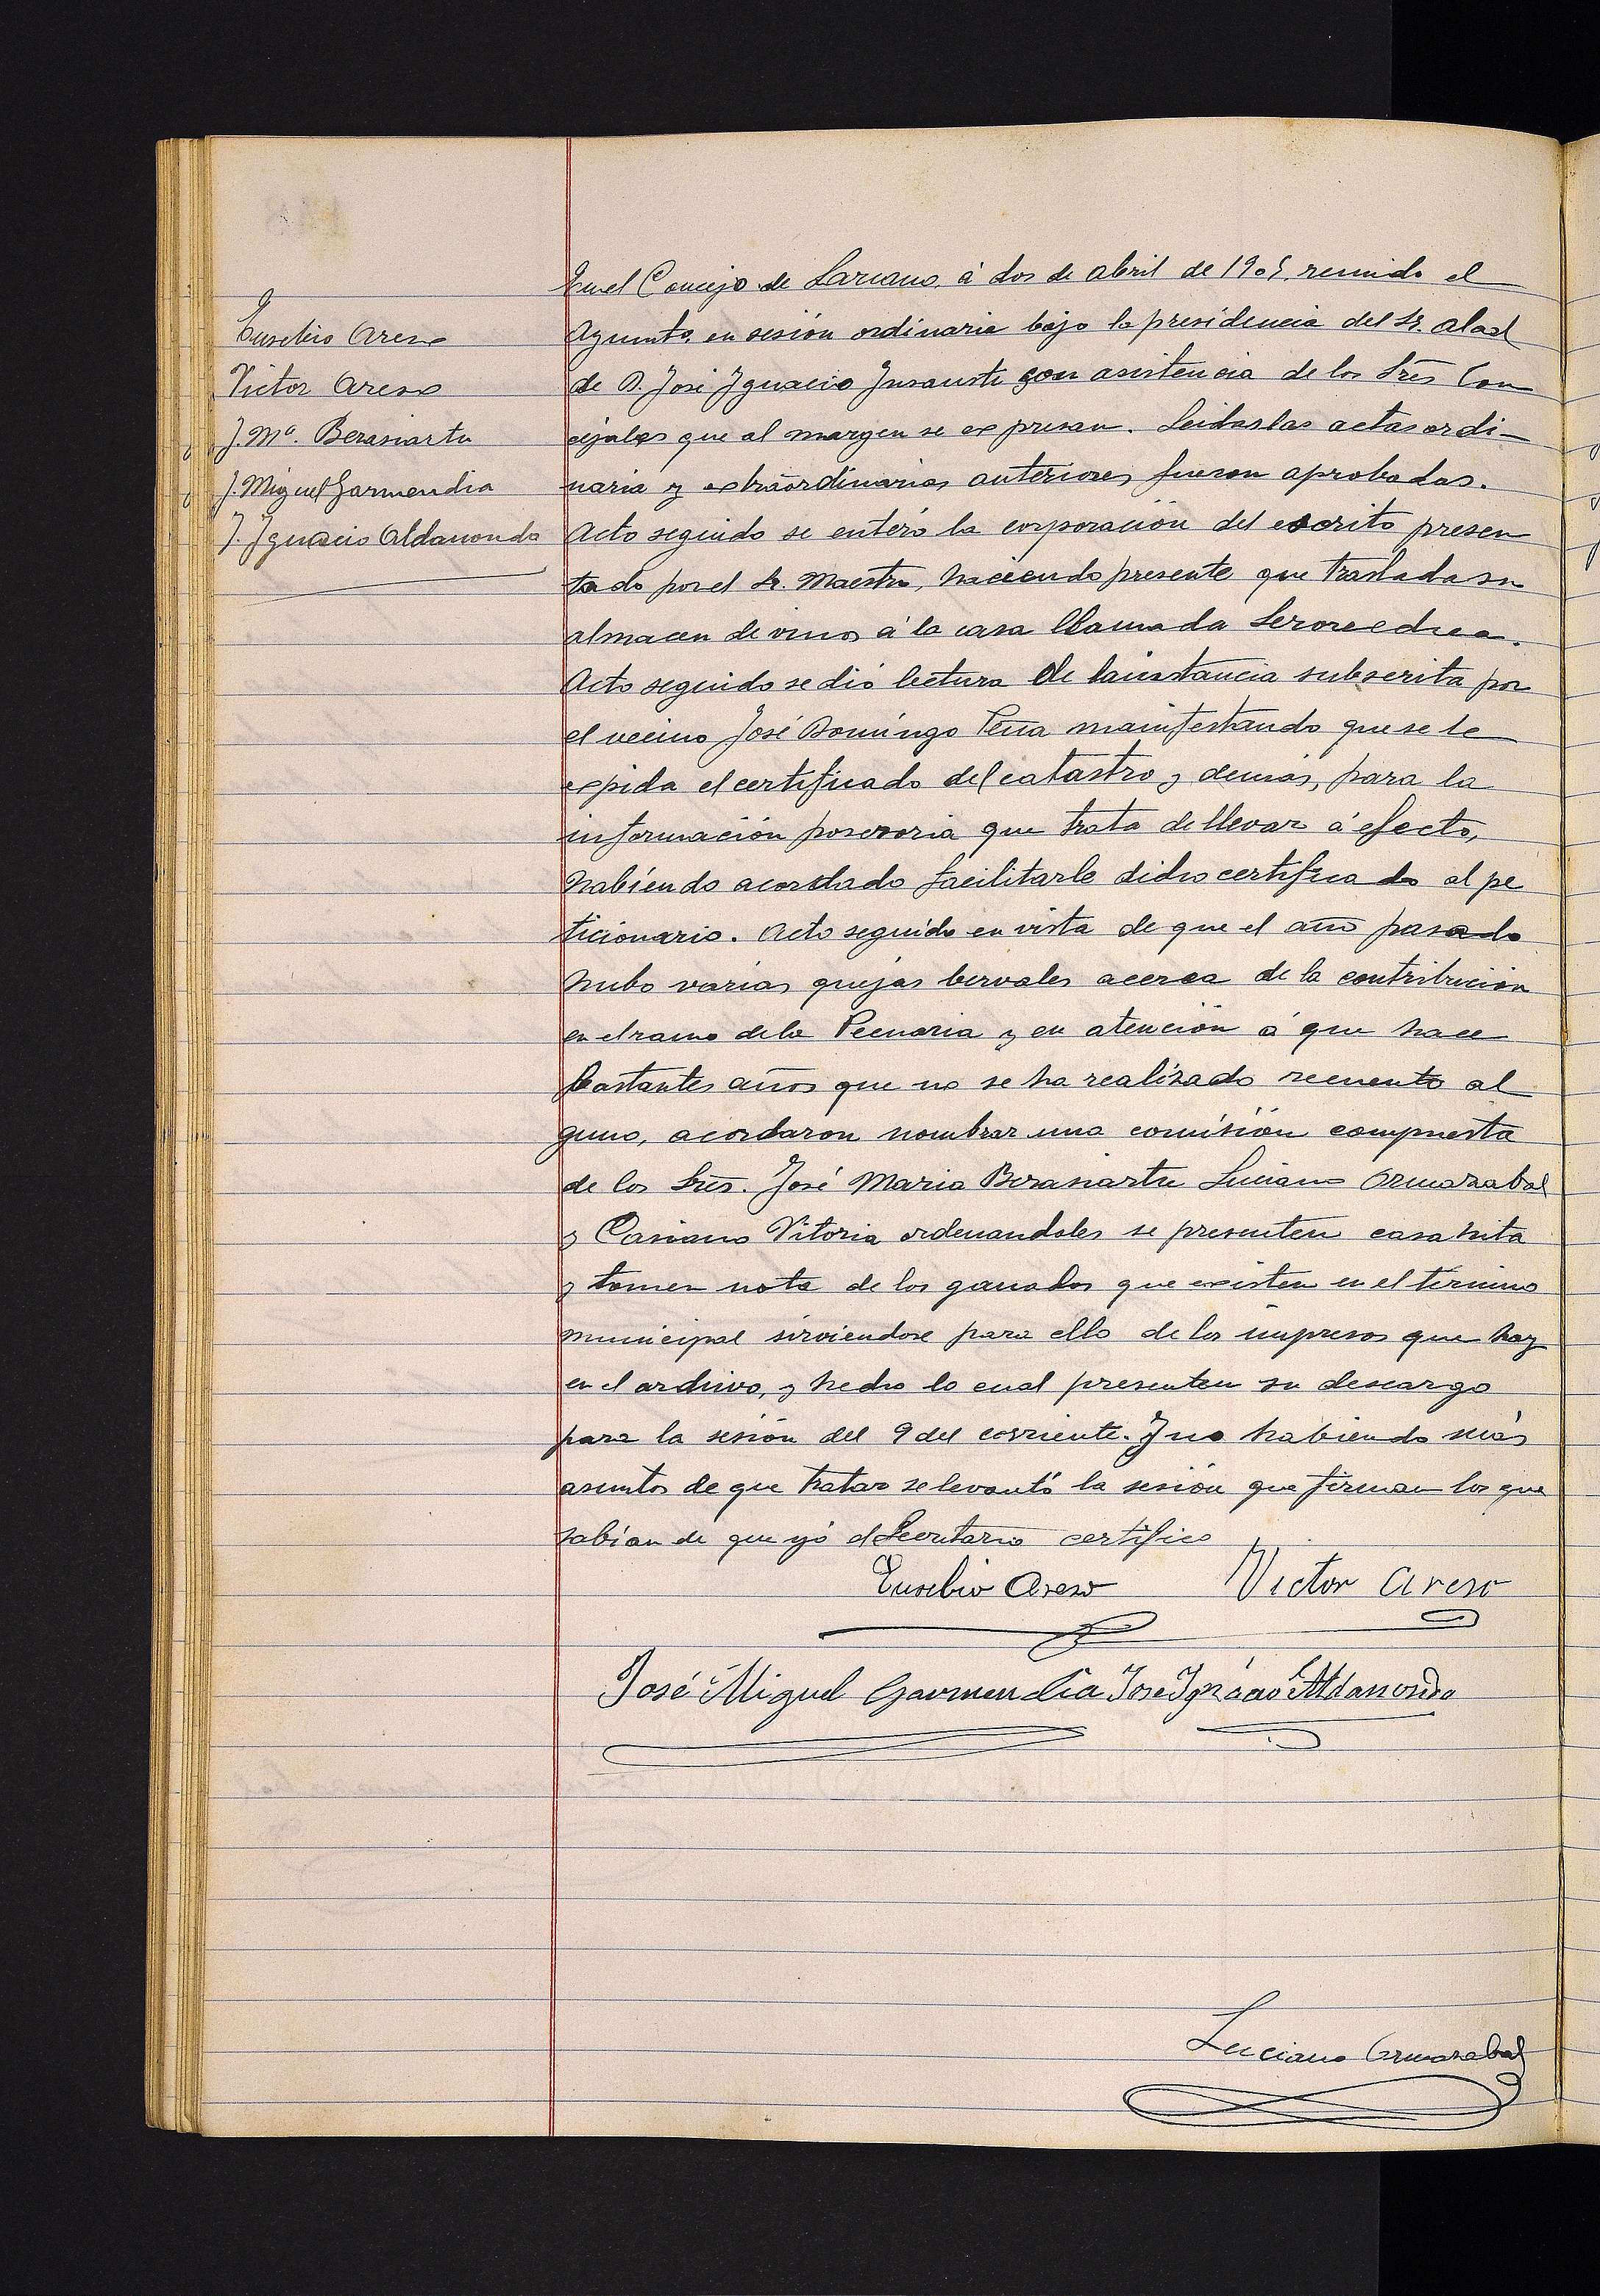 Eusebio Areso
Victor Areso
J. Mª. Berasiartu
J. Miguel Garmendia
J. Ignacio Aldanondo
En el Concejo de Larcano, á dos de abril de 1905, reunido el
Ayunto. en sesión ordinaria bajo la presidencia del Sr. Alcal
de D. José Ignacio Insausti con asistencia de los Sres Con
cejales que al margen se expresan. Leidas las actas ordi-
naria y extraordinarias anteriores fueron aprobadas.
Acto seguido se enteró la corporación del escrito presen
tado por el Sr. Maestro, haciendo presente que traslada su
almacen de vinos á la casa llamada
Acto seguido se dió lectura de la instancia subscrita por
el vecino José Domingo Peña manifestando que se le
expida el certificado del catastro y demás, para la
información posesoria que trata de llevar á efecto,
habiendo acordado facilitarle dicho certificado al pe
ticionario. Acto seguido en vista de que el año pasado
hubo varias quejas bervales acerca de la contribución
en el ramo de la Pecuaria y en atención á que hace
bastantes años que no se ha realizado recuento al
guno, acordaron nombrar una comisión compuesta
de los Sres. José Maria Berasiartu Luciano Ormazabal
y Casiano Vitoria ordenandoles se presenten casa hita
y tomen nota de los ganados que existen en el término
municipal sirviendose para ello de los impresos que hay
en el archivo, y hecho lo cual presenten su descargo
para la sesión del 9 del corriente. Y no habiendo más
asuntos de que tratar se levantó la sesión que firman los que
sabían de que yó el Secretario certifico
Eusebio Areso Victor Areso
José Miguel Garmendia José Ignacio Aldanondo
Luciano Ormazabal